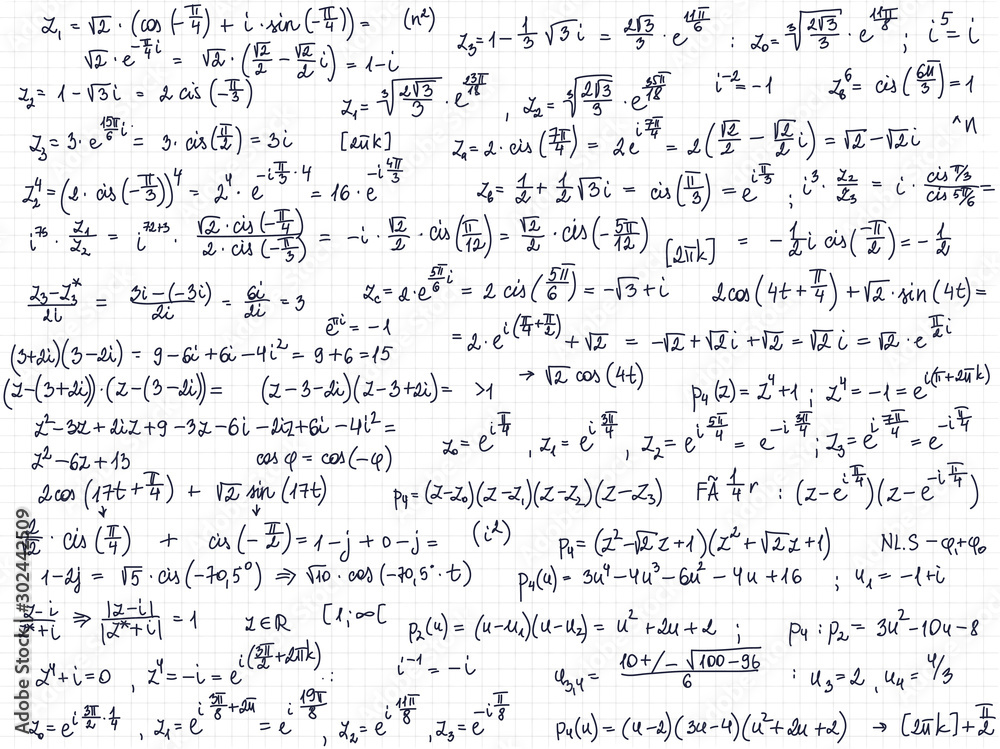 z₁ = √2 · (cos(-π/4) + i · sin(-π/4)) = (n²)
√2 · e^(-π/4 i) = √2 · (√2/2 - √2/2 i) = 1-i
z₃ = 1 - 1/3 √3 i = 2√3/3 · e^(11π/6) : z₀ = ∛(2√3/3) · e^(11π/8) ; i⁵ = i
z₂ = 1 - √3i = 2 cis(-π/3)
z₁ = ∛(2√3/3) · e^(23π/18) , z₂ = ∛(2√3/3) · e^(35π/18) i⁻² = -1 z₆⁶ = cis(6π/3) = 1
z₃ = 3 · e^(15π/6 i) = 3 · cis(π/2) = 3i [2πk]
z₂ = 2 · cis(7π/4) = 2e^(i 7π/4) = 2(√2/2 - √2/2 i) = √2 - √2i ^n
z₂⁴ = (2 · cis(-π/3))⁴ = 2⁴ · e^(-i π/3 · 4) = 16 · e^(-i 4π/3)
z₆ = 1/2 + 1/2 √3i = cis(π/3) = e^(i π/3) ; i³ · z₂/z₃ = i · cis π/3 / cis 5π/6 =
i⁷⁵ · z₁/z₂ = i^(72+3) · √2 · cis(-π/4) / 2 · cis(-π/3) = -i · √2/2 · cis(π/12) = √2/2 · cis(-5π/12) [2πk] = -1/2 i cis(-π/2) = -1/2
z₃-z₃*/2i = 3i-(-3i)/2i = 6i/2i = 3
z_c = 2 · e^(5π/6 i) = 2 cis(5π/6) = -√3 + i 2cos(4t + π/4) + √2 · sin(4t) =
e^(πi) = -1
= 2 · e^(i(π/4+π/2)) + √2 = -√2 + √2i + √2 = √2i = √2 · e^(π/2 i)
(3+2i)(3-2i) = 9-6i+6i-4i² = 9+6=15
→ √2 cos(4t)
(z-(3+2i))·(z-(3-2i)) = (z-3-2i)(z-3+2i) = >1
p₄(z) = z⁴+1 ; z⁴ = -1 = e^(i(π+2πk))
z²-3z+2iz+9-3z-6i-2iz+6i-4i² =
z₀ = e^(i π/4) , z₁ = e^(i 3π/4) , z₂ = e^(i 5π/4) = e^(-i 3π/4) ; z₃ = e^(i 7π/4) = e^(-i π/4)
z²-6z+13 cos φ = cos(-φ)
2cos(17t + π/4) + √2 sin(17t)
p₄ = (z-z₀)(z-z₁)(z-z₂)(z-z₃) FÃ 1/4 r : (z-e^(i π/4))(z-e^(-i π/4))
· cis(π/4) + cis(-π/2) = 1-j+0-j = (i²)
p₄ = (z²-√2z+1)(z²+√2z+1) NL.S - φ₁+φ₀
1-2j = √5 · cis(-70,5°) ⇒ √10 · cos(-70,5° · t)
p₄(u) = 3u⁴-4u³-6u²-4u+16 ; u₁ = -1+i
z-i/z*+i ⇒ |z-i|/|z*+i| = 1 z∈ℝ [1;∞[
p₂(u) = (u-u₁)(u-u₂) = u²+2u+2 ; p₄ : p₂ = 3u²-10u-8
z⁴+i=0 , z⁴=-i = e^(i(3π/2+2πk)) : i⁻¹ = -i
u₃,₄ = 10+/-√(100-96)/6 : u₃=2 , u₄ = 4/3
z₀ = e^(i 3π/2 · 1/4) , z₁ = e^(i 3π/8+2π) = e^(i 19π/8) , z₂ = e^(i 11π/8) , z₃ = e^(-i π/8)
p₄(u) = (u-2)(3u-4)(u²+2u+2) → [2πk]+π/2
Adobe Stock | #302442509